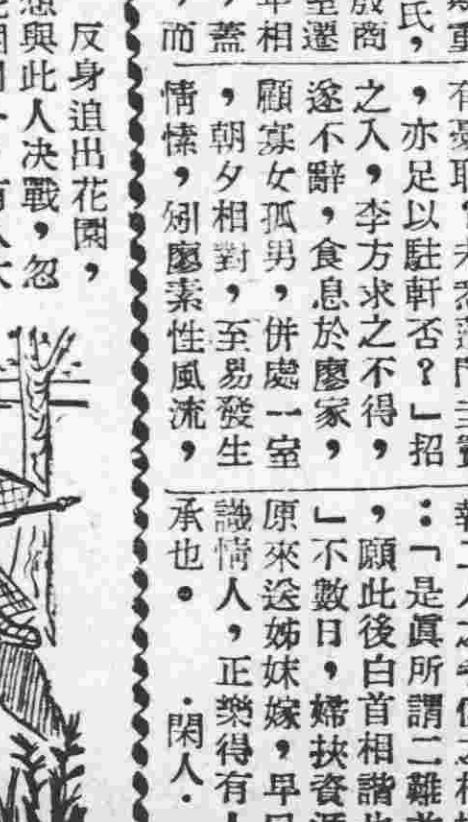 重
氏，
商
遷
相
蓋
，而
，亦足以駐軒否？」招
之入，李方求之不得，
遂不辭，食息於廖家，
顧寡女孤男，併處一室
，朝夕相對，至易發生
情愫，矧廖素性風流，
：「是眞所謂二難
，願此後白首相諧
」不數日，婦挾資
原來送姊妹嫁，早
識情人，正樂得有
承也。
·閑人·
反身追出花園，
想與此人决戰，忽